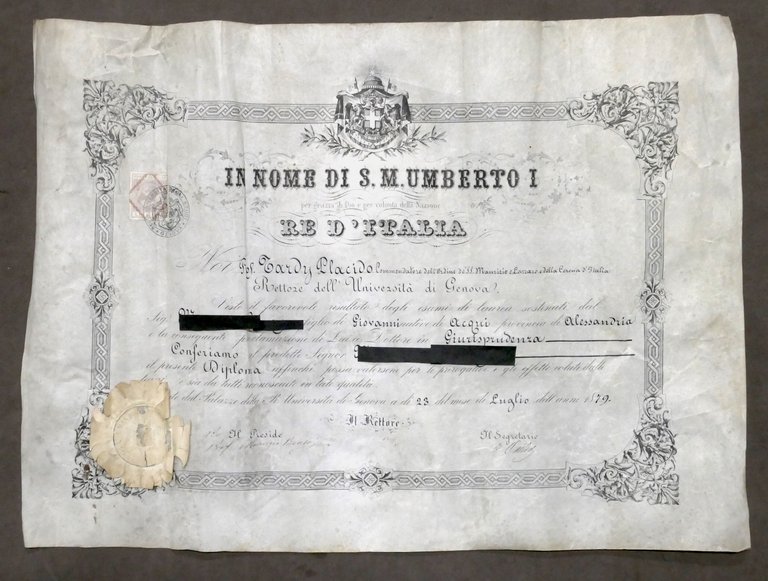 IN NOME DI S.M. UMBERTO I
per grazia di Dio e per volontà della Nazione
RE D'ITALIA
Noi Prof. Tardy Placido Commendatore dell'Ordine de SS. Maurizio e Lazzaro e della Corona d'Italia
Rettore dell'Università di Genova,
Visto il favorevole resultato degli esami di laurea sostenuti dal
Sig. figlio di Giovanni nativo di Acqui provincia di Alessandria
e la conseguente proclamazione di Lui a Dottore in Giurisprudenza
Conferiamo il predetto Signor
il presente Diploma affinchè possa valersene per le prerogative e gli effetti
e sia da tutti riconosciuto in tale qualità.
dal Palazzo della R. Università di Genova a dì 23 del mese di Luglio dell'anno 1879.
Il Rettore
Il Preside Il Segretario